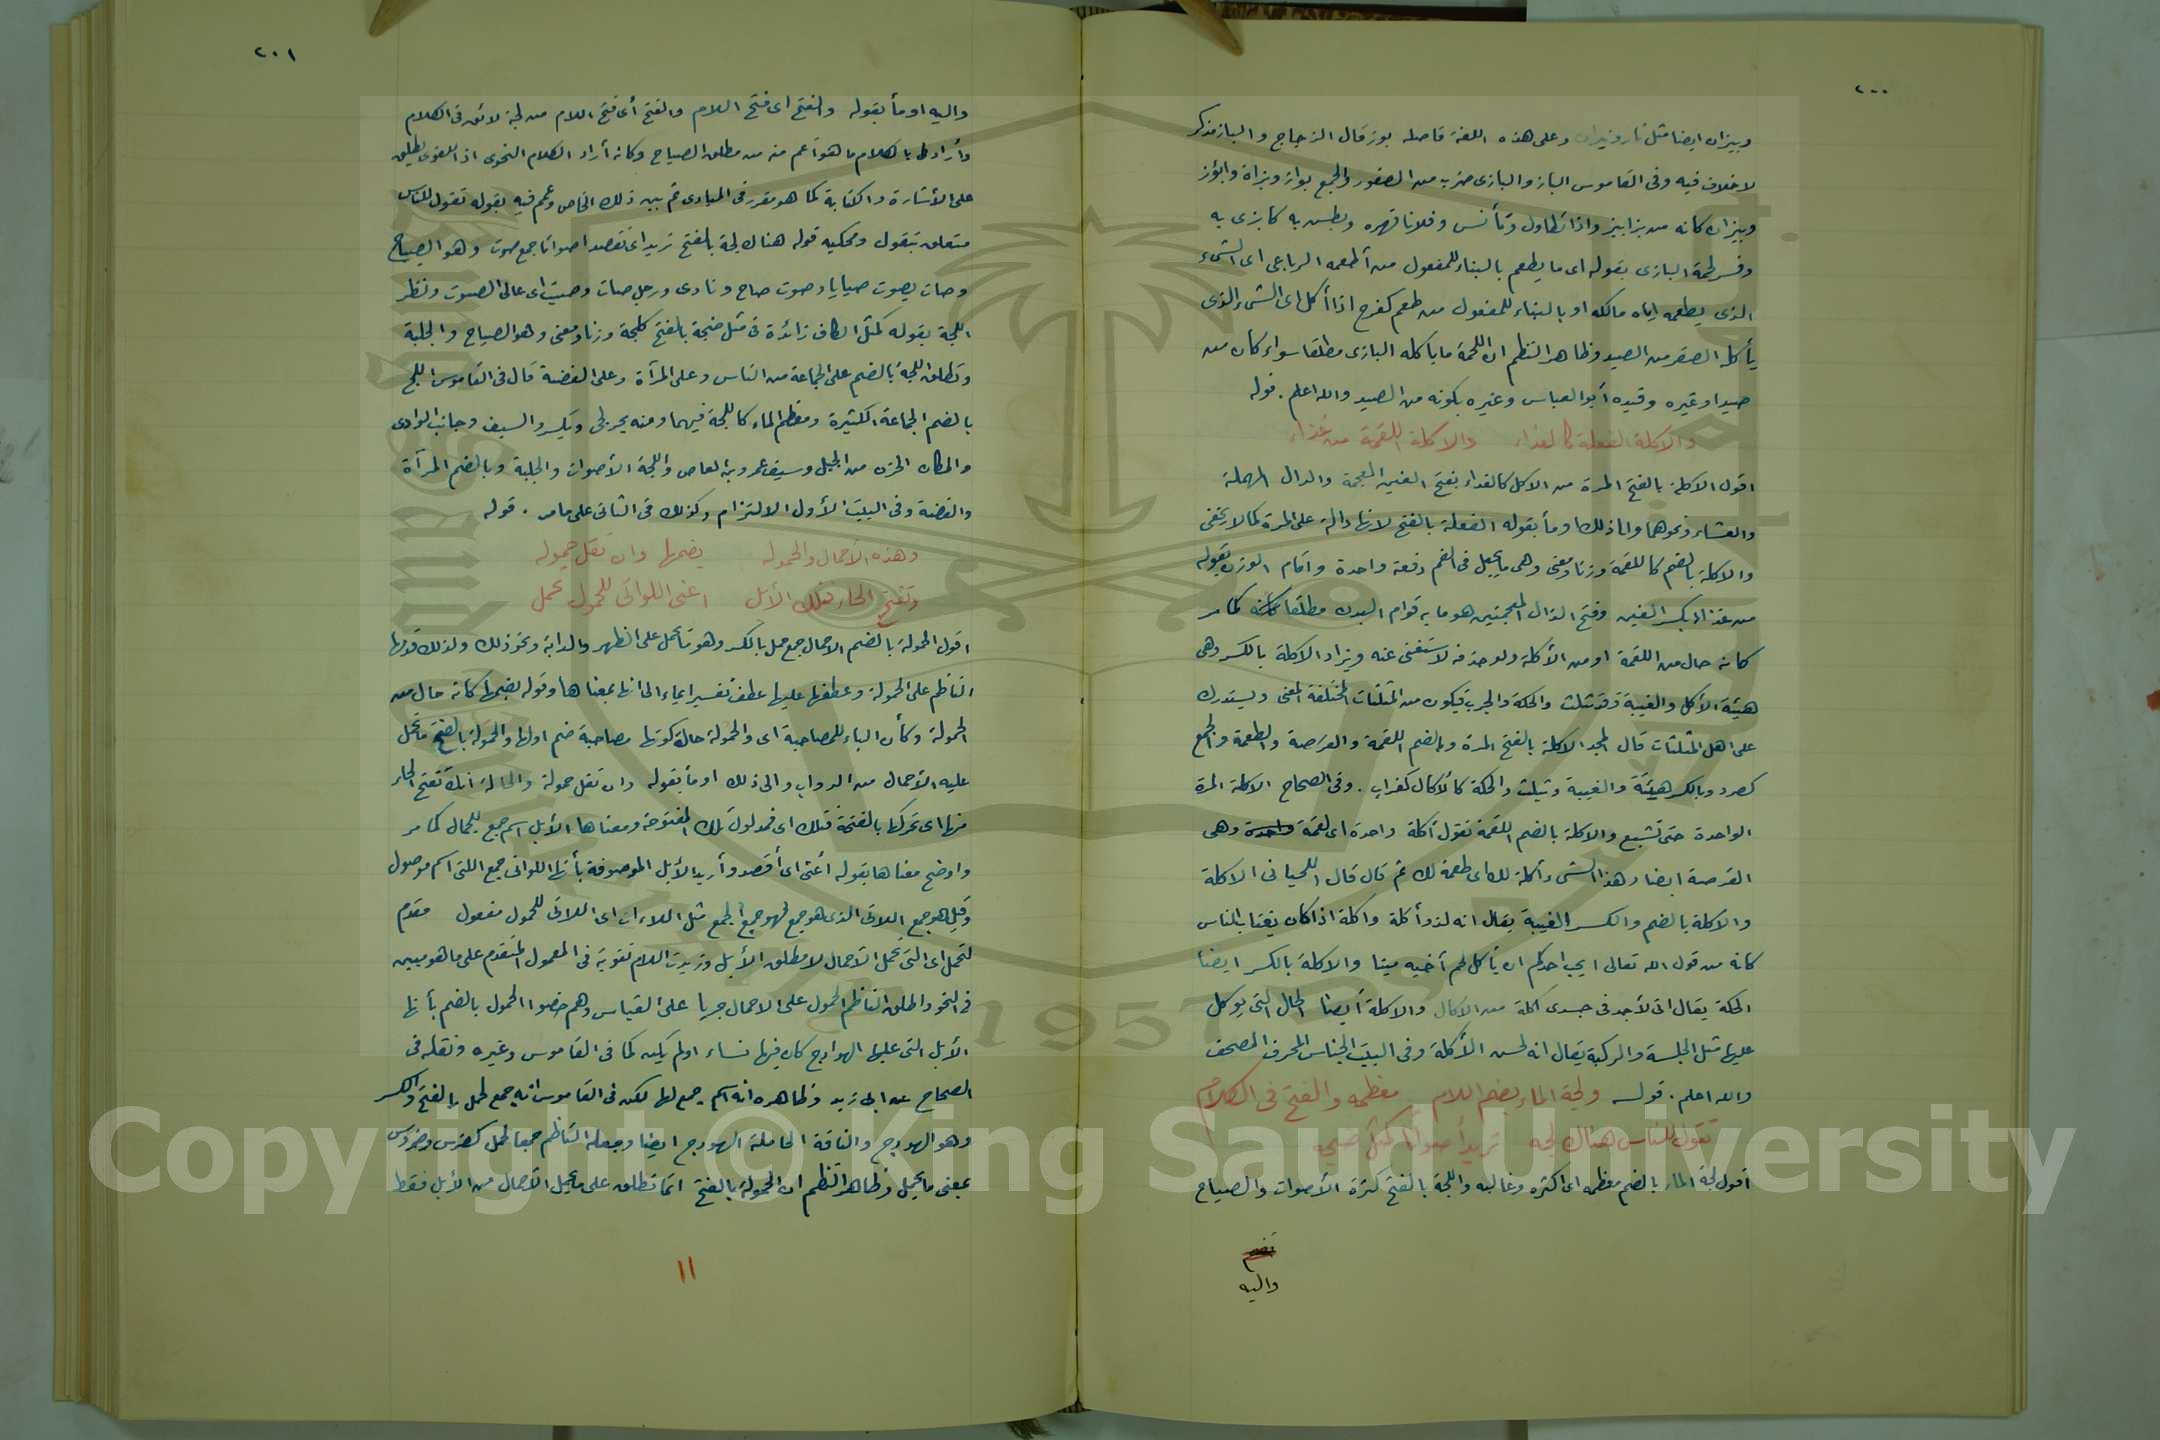 ٢٠٠
وبيزان ايضا مثل نار ونيران وعلى هذه اللغة فاصله بوز قال الزجاج والباز مذكر
لا خلاف فيه وفى القاموس الباز والبازى ضرب من الصقور والجمع بواز وبزاة وابؤز
وبيزان كانه من بزا يبز واذا تطاول وتأنس وفلانا قهره وبطس به كابزى به
وفسر لحمة البازى بقوله اى ما يطعم بالبناء للمفعول من أطعمه الرباعى اى الشىء
الذى يطعمه اياه مالكه او بالبناء للمفعول من طعم كفرح اذا أكل اى الشىء الذى
يأكله الصقر من الصيد وظاهر النظم ان اللحمة ما ياكله البازى مطلقا سواء كان من
صيد او غيره وقيده أبو العباس وغيره بكونه من الصيد والله اعلم . قوله
والاكلة الفعلة كالغداء والاكلة اللقمة من غذاء
اقول الاكلة بالفتح المرة من الاكل كالغداء بفتح الغين المعجمة والدال المهملة
والعشاء ونحوهما والى ذلك اومأ بقوله الفعلة بالفتح لانها دالة على المرة كما لا يخفى
والاكلة بالضم كاللقمة وزنا ومعنى وهى ما يجعل فى الفم دفعة واحدة واقام الوزن بقوله
من غذاء بكسر الغين وفتح الذال المعجمتين هو ما به قوام البدن مطلقا كما مر
كانه حال من اللقمة او من الأكلة ولو حذفه لاستغنى عنه ويزاد الاكلة بالكسر وهى
هيئة الأكل والغيبة وقد تثلث والحكة والجرب فيكون من المثلثات المختلفة المعنى ويستدرك
على اهل المثلثات قال المجد الاكلة بالفتح المرة وبالضم اللقمة والقرصة والطعمة والجمع
كصرد وبالكسر هيئته والغيبة وتثلث والحكة كالأكال كغراب . وفى الصحاح الاكلة المرة
الواحدة حتى تشبع والاكلة بالضم اللقمة تقول أكلة واحدة اى لقمة واحدة وهى
القرصة ايضا وهذا الشىء أكلة لك اى طعمة لك ثم قال قال اللحيانى الاكلة
والاكلة بالضم والكسر الغيبة يقال انه لذو أكلة واكلة اذا كان يغتاب الناس
كانه من قول الله تعالى ايحب احدكم ان يأكل لحم أخيه ميتا والاكلة بالكسر ايضا
الحكة يقال انى لأجد فى جسدى اكلة من الاكال والاكلة أيضا الحال التى يوكل
عليها مثل الجلسة والركبة يقال انه لحسن الأكلة وفى البيت الجناس المحرف المصحف
والله اعلم . قوله ولجة الماء بضم اللام معظمه والفتح فى الكلام
تقول للناس هناك لجه تريد أصواتا كمثل ضجه
أقول لجة الماء بالضم معظمه اى اكثره وغالبه واللجة بالفتح كثرة الأصوات والصياح
واليه
٢٠١
واليه اومأ بقوله والفتح اى فتح اللام والفتح أى فتح اللام من لجة لائق فى الكلام
وأراد بالكلام ما هو أعم منه من مطلق الصياح وكانه أراد الكلام النحوى اذ اللغوى يطلق
على الأشارة والكتابة كما هو مقرر فى المبادى ثم بين ذلك الخاص وعمم فيه بقوله تقول للناس
متعلق بتقول ومحكيه قوله هناك لجة بالفتح تريد اى تقصد اصواتا جمع صوت وهو الصياح
وصات يصوت صياتا وصوت صاح ونادى ورجل صات وصيت اى عالى الصوت ونظر
اللجة بقوله كمثل الكاف زائدة فى مثل ضجة بالفتح كلجة وزنا ومعنى وهو الصياح والجلبة
وتطلق اللجة بالضم على الجماعة من الناس وعلى المرآة وعلى الفضة قال فى القاموس اللج
بالضم الجماعة الكثيرة ومعظم الماء كاللجة فيهما ومنه بحر لجى ويكسر والسيف وجانب الوادى
والمكان الحزن من الجبل وسيف عمرو بن العاص واللجة الأصوات والجلبة وبالضم المرآة
والفضة وفى البيت الأول الالتزام وكذلك فى الثانى على ما مر . قوله
وهذه الأحمال والحموله بضمها وان تقل حموله
وتفتح الحاء فتلك الأبل اعنى اللواتى للحمول تحمل
اقول الحمولة بالضم الاحمال جمع حمل بالكسر وهو ما تحمل على الظهر والدابة ونحو ذلك ولذلك قدمها
الناظم على الحمولة وعطفها عليها عطف تفسير ايماء الى انها بمعناها وقوله بضمها كانه حال من
الحمولة وكأن الباء للمصاحبة اى والحمولة حالة كونها مصاحبة ضم اولها والحمولة بالفتح ما تحمل
عليه الأحمال من الدواب والى ذلك اومأ بقوله وان تقل حمولة والحالة انك تفتح الحاء
منها اى تحركها بالفتحة فتلك اى فمدلول تلك المفتوحة ومعناها الأبل اسم جمع للجمال كما مر
واوضح معناها بقوله أعنى اى أقصد وأريد الأبل الموصوفة بأنها اللواتى جمع اللتى اسم موصول
وقيل هو جمع اللاتى الذى هو جمع فهو جمع الجمع مثل اللاءات اى اللاتى للحمول مفعول مقدم
لتحمل اى التى تحمل الأحمال لا مطلق الأبل وزيدت اللام تقوية فى المعمول المتقدم على ما هو مبين
فى النحو واطلق الناظم الحمول على الاحمال جريا على القياس وهم خصوا الحمول بالضم بأنها
الأبل التى عليها الهوادج كان فيها نساء او لم يكن كما فى القاموس وغيره ونقله فى
الصحاح عن ابى زيد وظاهره انه اسم جمع لها لكن فى القاموس انه جمع لحمل بالفتح والكسر
وهو الهودج والناقة الحاملة الهودج ايضا وجعله الناظم جمعا لحمل كضرس وضروس
بمعنى ما يحمل وظاهر النظم ان الحمولة بالفتح انما تطلق على ما يحمل الأحمال من الأبل فقط
١١
Copyright © King Saud University
1957